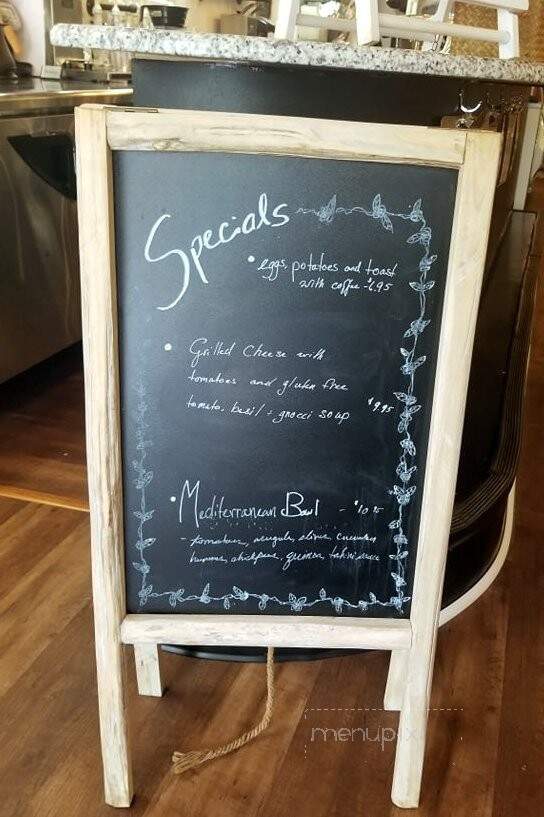 Specials
• eggs, potatoes and toast
with coffee - $6.95
• Grilled Cheese with
tomatoes and gluten free
tomato, basil + gnocci soup $9.95
• Mediterranean Bowl - $10.95
- tomatoes, arugula, olives, cucumber
hummus, chickpeas, quinoa, tahini sauce
menupix